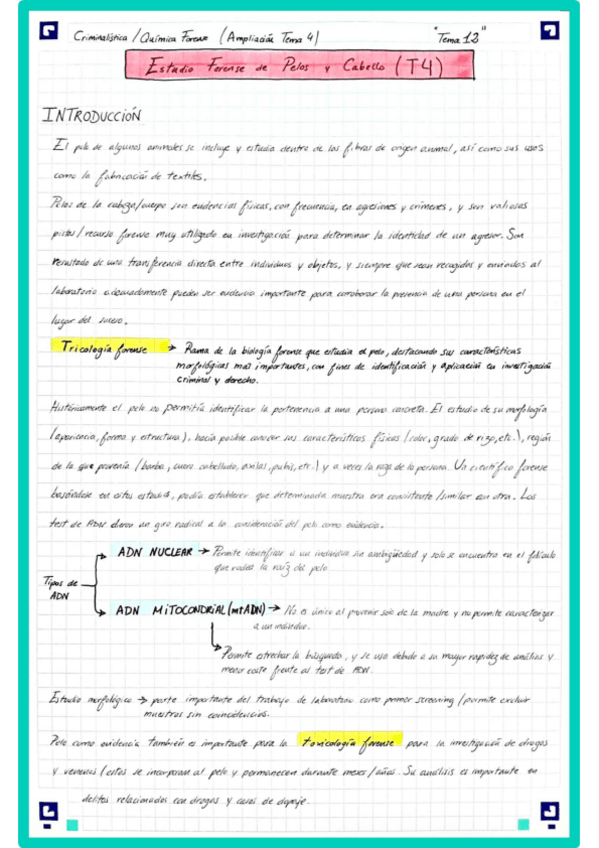 Criminalística / Química Forense (Ampliación Tema 4) "Tema 12"
Estudio Forense de Pelos y Cabello (T4)
INTRODUCCIÓN
El pelo de algunos animales se incluye y estudia dentro de las fibras de origen animal, así como sus usos
como la fabricación de textiles.
Pelos de la cabeza/cuerpo son evidencias físicas, con frecuencia, en agresiones y crímenes, y son valiosas
pistas/recurso forense muy utilizado en investigación para determinar la identidad de un agresor. Son
resultado de una transferencia directa entre individuos y objetos, y siempre que sean recogidos y enviados al
laboratorio adecuadamente pueden ser evidencia importante para corroborar la presencia de una persona en el
lugar del suceso.
Tricología forense → Rama de la biología forense que estudia el pelo, destacando sus características
morfológicas más importantes, con fines de identificación y aplicación en investigación
criminal y derecho.
Históricamente el pelo no permitía identificar la pertenencia a una persona concreta. El estudio de su morfología
(apariencia, forma y estructura), hacía posible conocer las características físicas (color, grado de rizo, etc.), región
de la que provenía (barba, cuero cabelludo, axilas, pubis, etc.) y a veces la raza de la persona. Un científico forense
basándose en estos estudios, podía establecer que determinada muestra era consistente/similar con otra. Los
test de ADN dieron un giro radical a la consideración del pelo como evidencia.
Tipos de
ADN
ADN NUCLEAR → Permite identificar a un individuo sin ambigüedad y solo se encuentra en el folículo
que rodea la raíz del pelo
ADN MITOCONDRIAL (mtADN) → No es único al provenir solo de la madre y no permite caracterizar
a un individuo.
Permite estrechar la búsqueda, y se usa debido a su mayor rapidez de análisis y
menor coste frente al test de ADN.
Estudio morfológico → parte importante del trabajo de laboratorio como primer screening / permite excluir
muestras sin coincidencias.
Pelo como evidencia también es importante para la toxicología forense para la investigación de drogas
y venenos (estos se incorporan al pelo y permanecen durante meses/años. Su análisis es importante en
delitos relacionados con drogas y casos de dopaje.